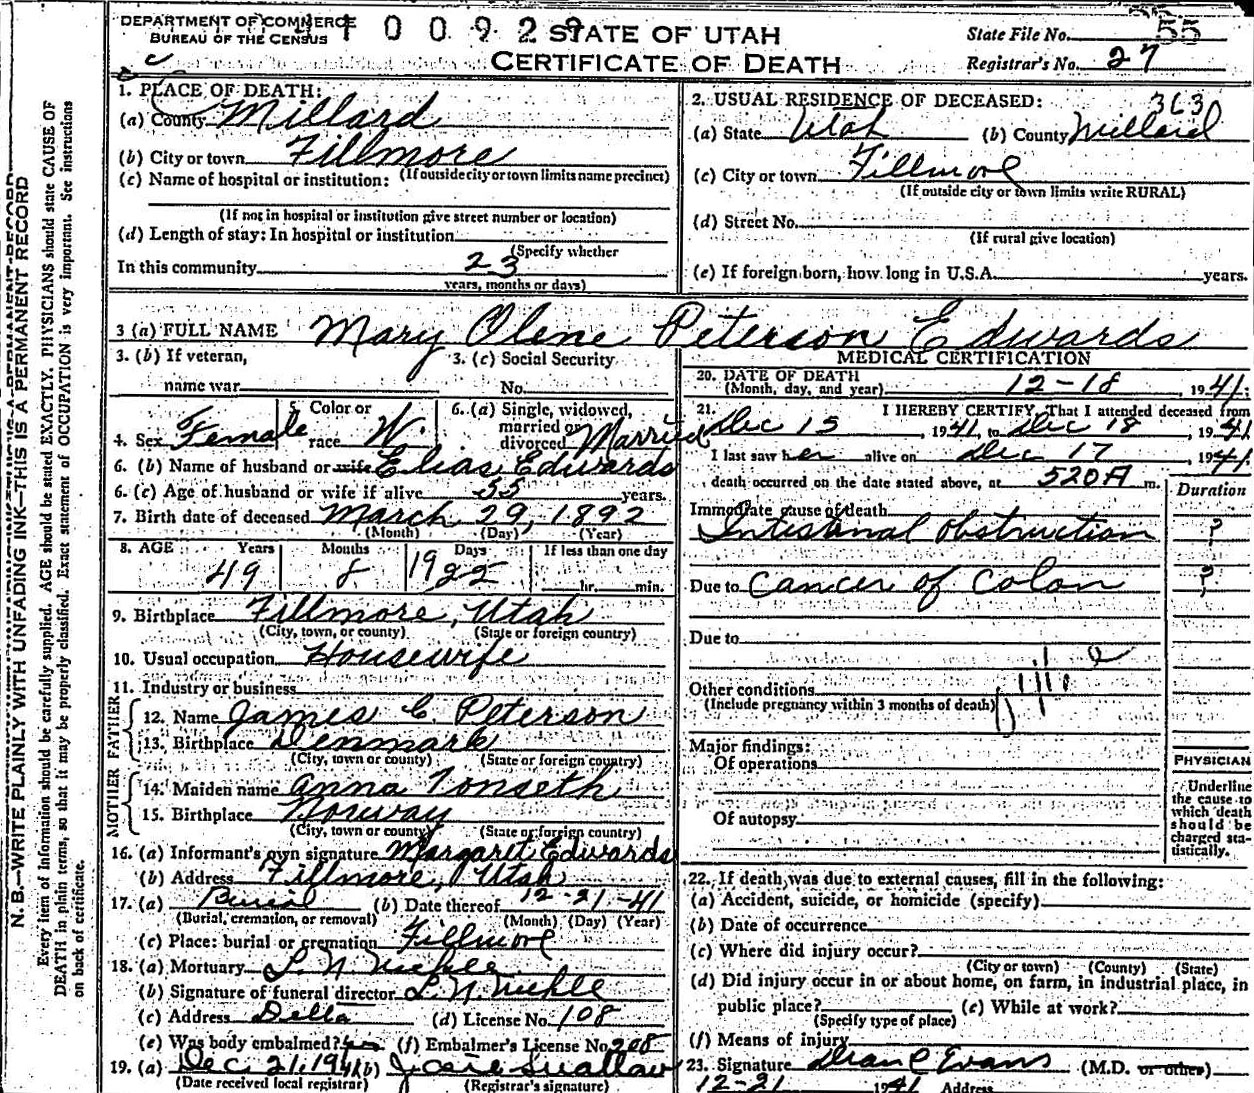 DEPARTMENT OF COMMERCE
BUREAU OF THE CENSUS
0 0 9 2 9
STATE OF UTAH
CERTIFICATE OF DEATH
State File No. 55
Registrar's No. 27
N. B.—WRITE PLAINLY WITH UNFADING INK—THIS IS A PERMANENT RECORD
Every item of information should be carefully supplied. AGE should be stated EXACTLY. PHYSICIANS should state CAUSE OF
DEATH in plain terms, so that it may be properly classified. Exact statement of OCCUPATION is very important. See instructions
on back of certificate.
1. PLACE OF DEATH:
(a) County Millard
(b) City or town Fillmore
(If outside city or town limits name precinct)
(c) Name of hospital or institution:
(If not in hospital or institution give street number or location)
(d) Length of stay: In hospital or institution
(Specify whether
In this community 23
years, months or days)
2. USUAL RESIDENCE OF DECEASED: 3630
(a) State Utah (b) County Millard
(c) City or town Fillmore
(If outside city or town limits write RURAL)
(d) Street No.
(If rural give location)
(e) If foreign born, how long in U.S.A. years.
3 (a) FULL NAME Mary Olene Peterson Edwards
3. (b) If veteran,
name war
3. (c) Social Security
No.
4. Sex Female
5. Color or
race W.
6. (a) Single, widowed,
married or
divorced Married
6. (b) Name of husband or wife Elias Edwards
6. (c) Age of husband or wife if alive 55 years.
7. Birth date of deceased March 29, 1892
(Month) (Day) (Year)
8. AGE Years Months Days If less than one day
49 8 19 22 hr. min.
9. Birthplace Fillmore, Utah
(City, town, or county) (State or foreign country)
10. Usual occupation Housewife
11. Industry or business
FATHER
12. Name James C. Peterson
13. Birthplace Denmark
(City, town or county) (State or foreign country)
MOTHER
14. Maiden name Anna Tonseth
15. Birthplace Norway
(City, town or county) (State or foreign country)
16. (a) Informant's own signature Margaret Edwards
(b) Address Fillmore, Utah
17. (a) Burial (b) Date thereof 12-21-41
(Burial, cremation, or removal) (Month) (Day) (Year)
(c) Place: burial or cremation Fillmore
18. (a) Mortuary L. N. Nickle
(b) Signature of funeral director L. N. Nickle
(c) Address Delta (d) License No. 108
(e) Was body embalmed? (f) Embalmer's License No. 208
19. (a) Dec 21, 1941 (b) Swallow
(Date received local registrar) (Registrar's signature)
MEDICAL CERTIFICATION
20. DATE OF DEATH
(Month, day, and year) 12-18, 1941.
21. I HEREBY CERTIFY, That I attended deceased from
Dec 15, 1941, to Dec 18, 1941
I last saw her alive on Dec 17 1941.
death occurred on the date stated above, at 520 A m.
Duration
Immediate cause of death
Intestinal Obstruction ?
Due to Cancer of Colon ?
Due to
Other conditions
(Include pregnancy within 3 months of death)
Major findings:
Of operations
Of autopsy
PHYSICIAN
Underline
the cause to
which death
should be
charged sta-
tistically.
22. If death was due to external causes, fill in the following:
(a) Accident, suicide, or homicide (specify)
(b) Date of occurrence
(c) Where did injury occur?
(City or town) (County) (State)
(d) Did injury occur in or about home, on farm, in industrial place, in
public place? (e) While at work?
(Specify type of place)
(f) Means of injury
23. Signature Dean C Evans (M.D. or other)
12-21 1941 Address